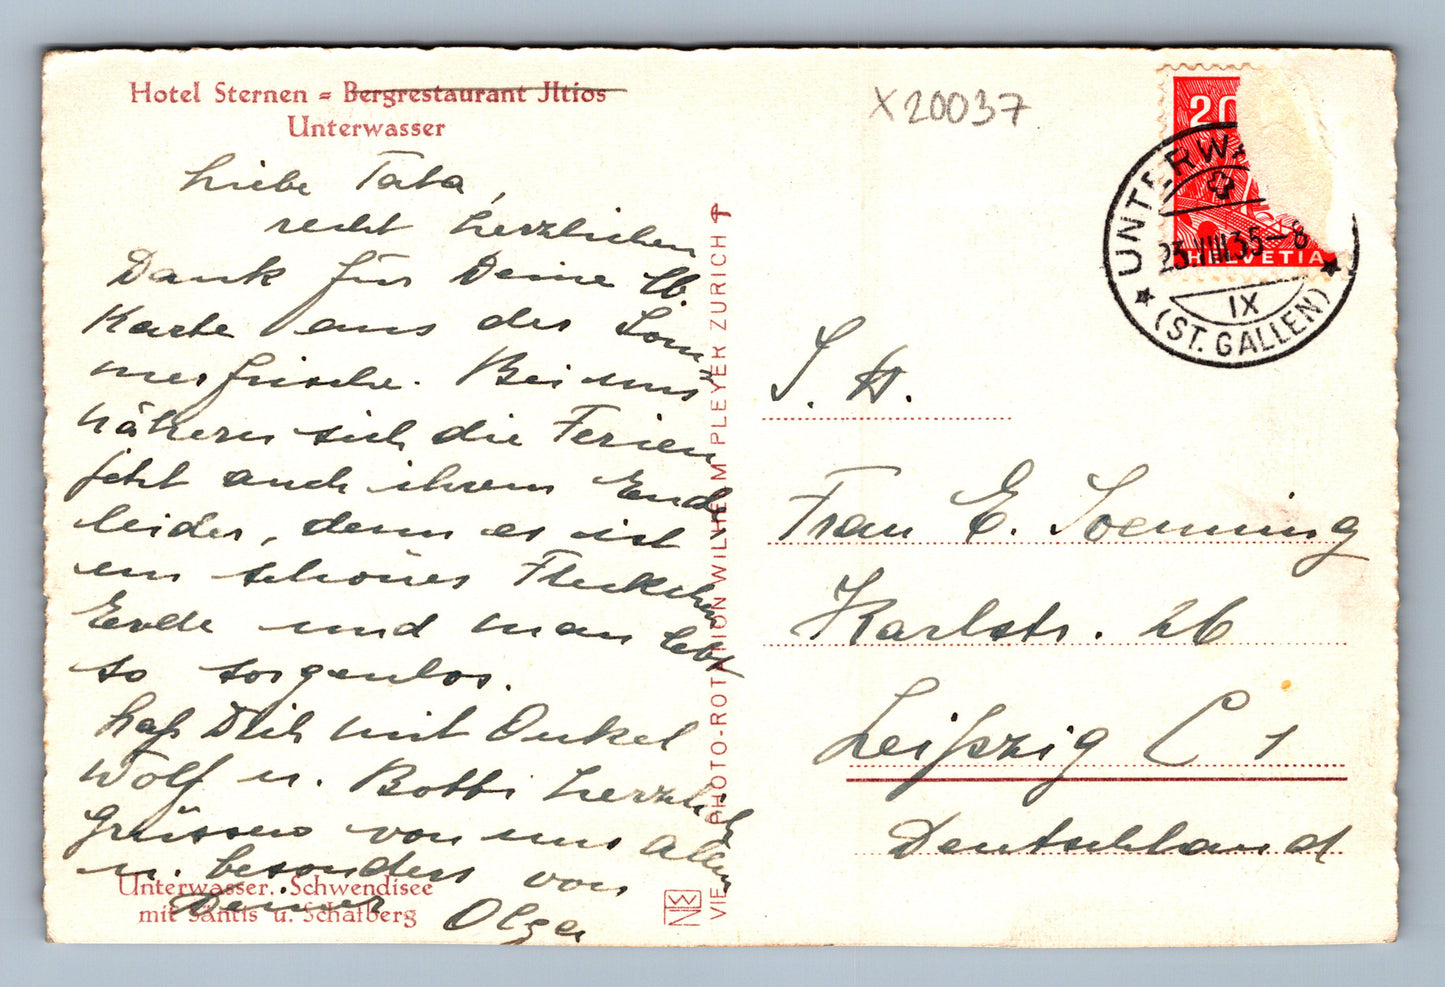 Hotel Sternen = Bergrestaurant Jltios
Unterwasser
X20037
Liebe Tata,
recht herzlichen
Dank für Deine lb.
Karte aus der Som=
merfrische. Bei uns
nähern sich die Ferien
jetzt auch ihrem Ende
leider, denn es ist
ein schönes Fleckchen
Erde und man lebt
so sorgenlos.
Laß Dich mit Onkel
Wolf u. Bobbi herzlich
grüssen von uns allen
u. besonders von
Deiner Olga
Unterwasser. Schwendisee
mit Säntis u. Schafberg
VIE PHOTO-ROTATION WILHELM PLEYER ZURICH
20
HELVETIA
UNTERWA
23.VIII.35-8
IX
(ST. GALLEN)
S. H.
Frau E. Soenning
Karlstr. 26
Leipzig C 1
Deutschland